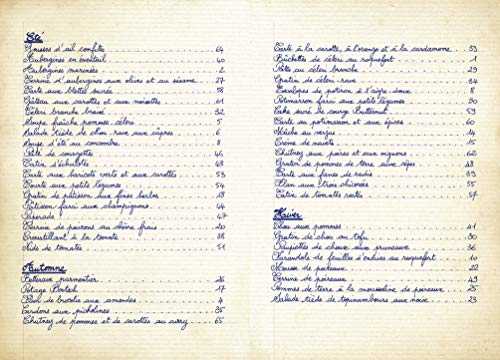 Été
Gousses d'ail confites 64
Aubergines en éventail 40
Aubergines marinées 2
Terrine d'aubergines aux olives et au sésame 27
Tarte aux blettes sucrée 58
Gâteau aux carottes et aux noisettes 61
Céleri branche braisé 32
Soupe fraîche pommes céleri 5
Salade tiède de chou rave aux câpres 6
Soupe d'été au concombre 8
Pâté de courgettes 46
Tatin d'échalote 48
Tarte aux haricots verts et aux carottes 53
Tourte aux petits légumes 54
Gratin de pâtisson aux fines herbes 18
Pâtisson farci aux champignons 44
Pipérade 47
Terrine de poivrons au chèvre frais 20
Croustillant à la tomate 11
Nids de tomates 51
Automne
Panteraux parmentier 26
Potage Dorlach 17
Pain de brocolis aux amandes 4
Cardons aux picholines 35
Chutney de pommes et de carottes au curry 65
Tarte à la carotte, à l'orange et à la cardamome 59
Bûchettes de céleri au roquefort 1
Pâtes au céleri branche 29
Gratin de céleri rave 34
Enveloppes de potiron à l'aigre doux 8
Potimarron farci aux petits légumes 50
Cake sucré de courge Butternut 59
Tarte au potimarron et aux épices 60
Mâche au verjus 14
Crème de navets 15
Chutney aux poires et aux oignons 62
Gratin de pommes de terre aux cèpes 48
Tarte aux fanes de radis 63
Flan aux trois chicorées 55
Tatin de tomates vertes 57
Hiver
Chou aux pommes 41
Gratin de chou au tofu 30
Paupiettes de choux aux pruneaux 36
Farandole de feuilles d'endives au roquefort 10
Mousse de panais 22
Terrine de poireaux 49
Pommes de terre à la mousseline de panais 25
Salade tiède de topinambours aux noix 23